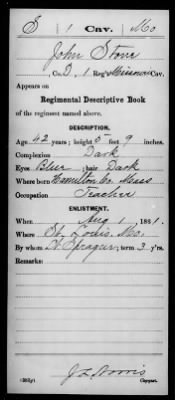 S | 1 | Cav. | Mo
John Stone
Co. D, 1 Reg't Missouri Cav.
Appears on
Regimental Descriptive Book
of the regiment named above.
DESCRIPTION.
Age 42 years; height 5 feet 9 inches.
Complexion Dark
Eyes Blue; hair Dark
Where born Hamilton Co. Mass
Occupation Teacher
ENLISTMENT.
When Aug 1, 1861.
Where St. Louis, Mo.
By whom Sprague; term 3 y'rs.
Remarks:
J L Norris
Copyist.